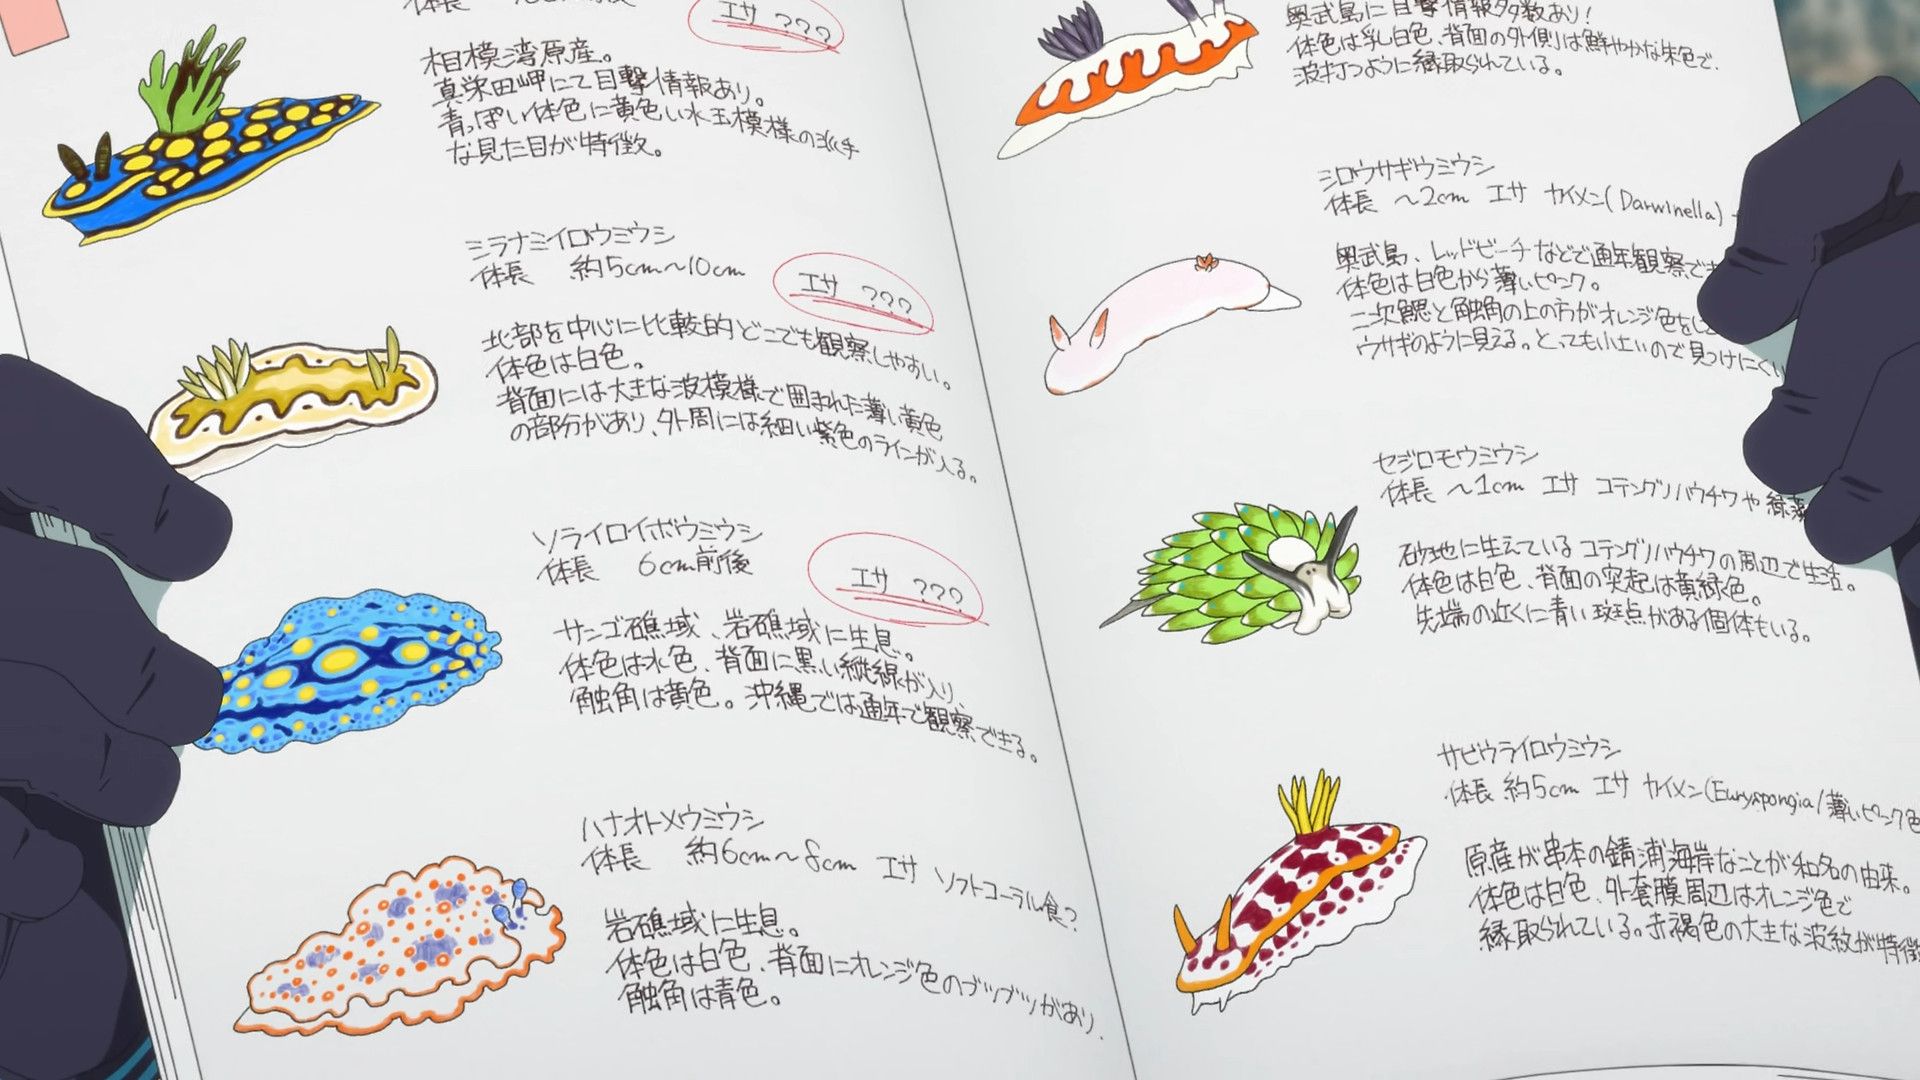 体長
エサ ???
相模湾原産。
真栄田岬にて目撃情報あり。
青っぽい体色に黄色い水玉模様の派手
な見た目が特徴。
ミラナミイロウミウシ
体長 約5cm〜10cm
エサ ???
北部を中心に比較的どこでも観察しやすい。
体色は白色。
背面には大きな波模様で囲まれた薄い黄色
の部分があり、外周には細い紫色のラインが入る。
ソライロイボウミウシ
体長 6cm前後
エサ ???
サンゴ礁域、岩礁域に生息。
体色は水色、背面に黒い縦線が入り、
触角は黄色。沖縄では通年で観察できる。
ハナオトメウミウシ
体長 約6cm〜8cm エサ ソフトコーラル食?
岩礁域に生息。
体色は白色、背面にオレンジ色のブツブツがあり、
触角は青色。
奥武島に目撃情報多数あり!
体色は乳白色、背面の外側は鮮やかな朱色で、
波打つように縁取られている。
シロウサギウミウシ
体長 〜2cm エサ カイメン(Darwinella)
奥武島、レッドビーチなどで通年観察でき
体色は白色から薄いピンク。
二次鰓と触角の上の方がオレンジ色をし
ウサギのように見える。とっても小さいので見つけにくい
セジロモウミウシ
体長 〜1cm エサ コテングノハウチワや緑藻
砂地に生えているコテングノハウチワの周辺で生活。
体色は白色、背面の突起は黄緑色。
先端の近くに青い斑点がある個体もいる。
サビウライロウミウシ
体長 約5cm エサ カイメン(Euryspongia/薄いピンク色
原産が串本の錆浦海岸なことが和名の由来。
体色は白色、外套膜周辺はオレンジ色で
縁取られている。赤褐色の大きな波紋が特徴